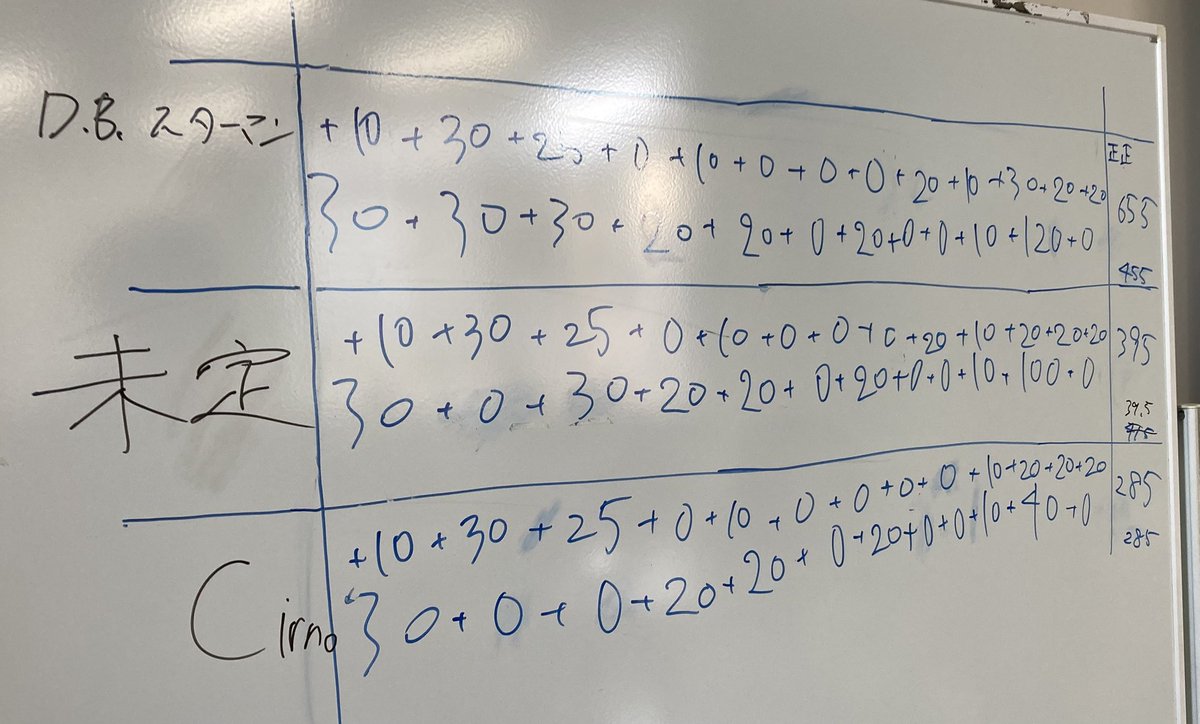 D.B. スターマン
+10 + 30 + 25 + 0 + 10 + 0 + 0 + 0 + 20 + 10 + 30 + 20 + 20
正正
30 + 30 + 30 + 20 + 20 + 0 + 20 + 0 + 0 + 10 + 120 + 0
655
455
未定
+10 + 30 + 25 + 0 + 10 + 0 + 0 + 0 + 20 + 10 + 20 + 20 + 20
395
30 + 0 + 30 + 20 + 20 + 0 + 20 + 0 + 0 + 10 + 100 + 0
39.5
Cirno
+10 + 30 + 25 + 0 + 10 + 0 + 0 + 0 + 0 + 10 + 20 + 20 + 20
285
30 + 0 + 0 + 20 + 20 + 0 + 20 + 0 + 0 + 10 + 40 + 0
285